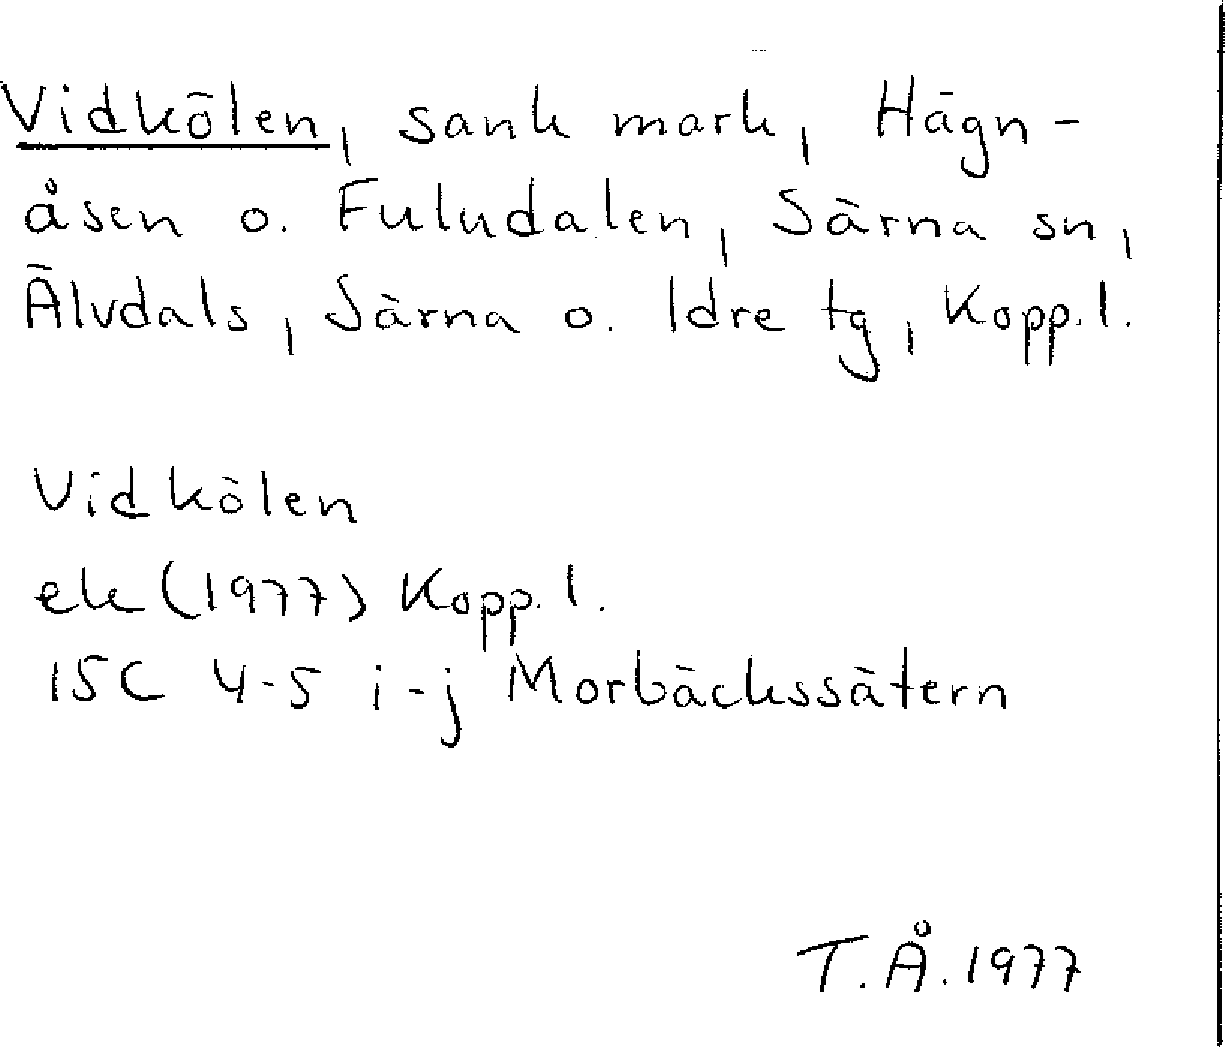 Vidkölen, sank mark, Hägn-
åsen o. Fuludalen, Särna sn,
Älvdals, Särna o. Idre tg, Kopp.l.
Vidkölen
ek (1977) Kopp.l.
15C 4-5 i-j Morbäckssätern
T.Å.1977